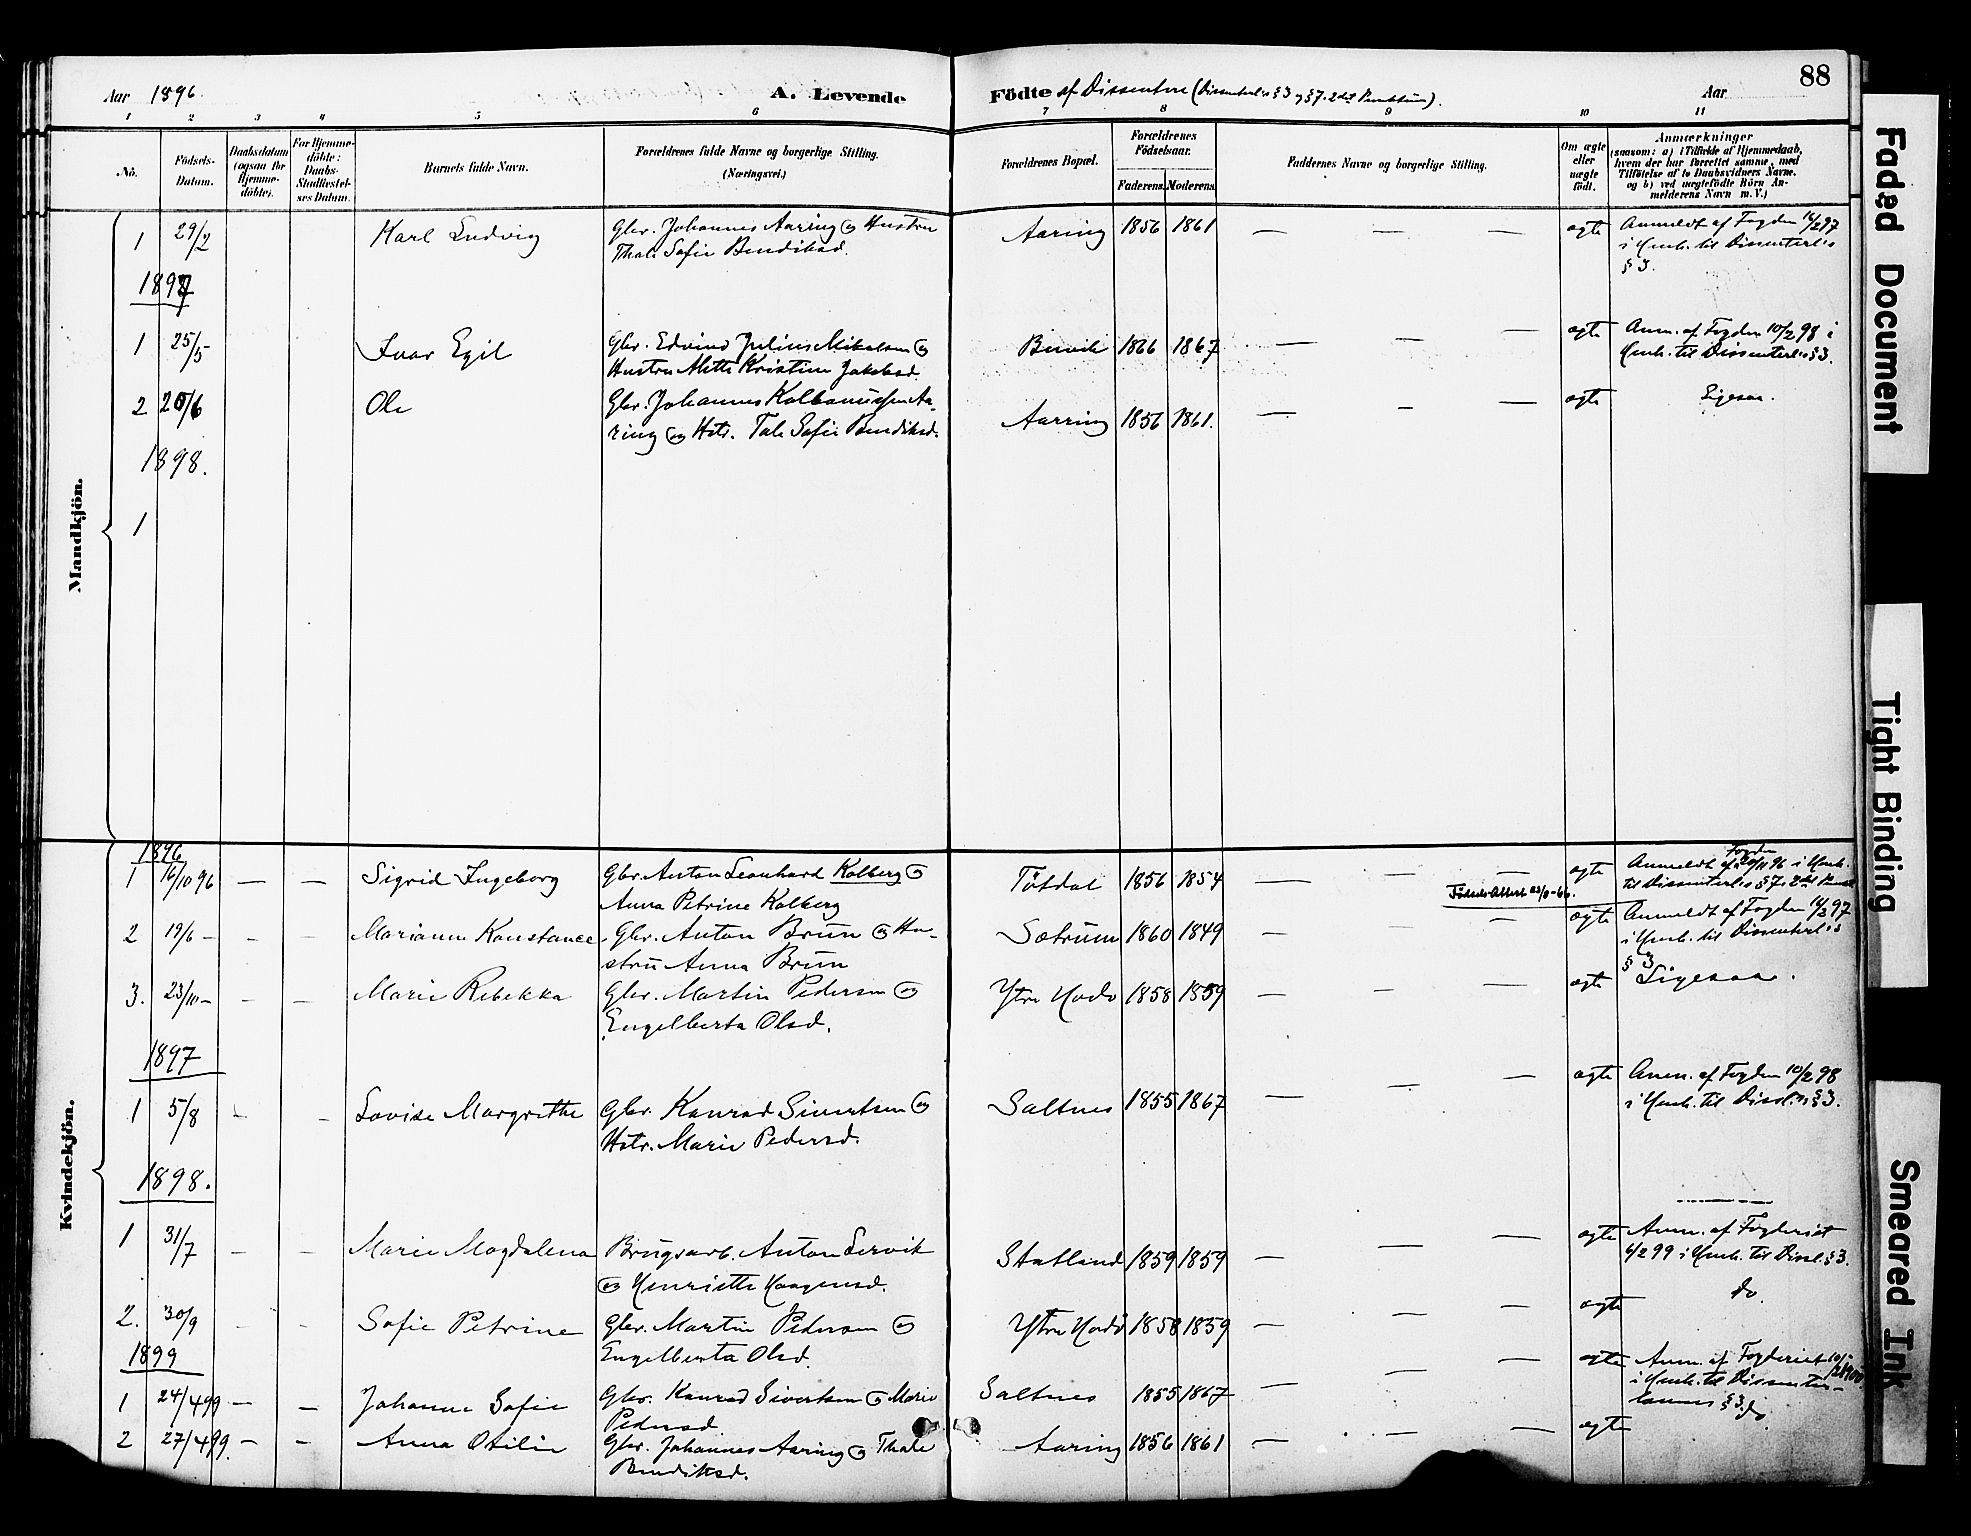 88
Aar 1896.
A. Levende
Födte af Dissentere (Dissenterl.s § 3 og § 7. 2det Punktum).
Aar
1 2 3 4 5 6 7 8 9 10 11
No.
Födsels-Datum.
Daabsdatum (ogsaa for Hjemme-döbte).
For Hjemme-döbte: Daabs-Stadfæstel-ses Datum.
Barnets fulde Navn.
Forældrenes fulde Navne og borgerlige Stilling. (Næringsvei.)
Forældrenes Bopæl.
Forældrenes Födselsaar.
Faderens. Moderens.
Faddernes Navne og borgerlige Stilling.
Om ægte eller uægte födt.
Anmærkninger (saasom: a) i Tilfælde af Hjemmedaab, hvem der har forrettet samme, med Tilföielse af to Daabsvidners Navne. og b) ved uægtefödte Börn An-melderens Navn m. V.)
Mandkjön.
1 29/2 Karl Ludvig Gbr. Johannes Aaring og Hustru Aaring 1856 1861 — — — ægte Anmeldt af Fogden 14/2 97
Thale Sofie Bendiksd. i Henh. til Dissenterl.s
§ 3.
1897
1 25/5 Ivar Egil Gbr. Edvind Julius Mikalsen og Binvik 1866 1867 — — — ægte Anm. af Fogden 10/2 98 i
Hustru Mette Kristine Jakobsd. Henh. til Dissenterl.s § 3.
2 20/6 Ole Gbr. Johannes Kolbanussen Aa- Aarring 1856 1861. — — — ægte Ligesaa.
ring og Hstr. Tale Sofie Bendiksd.
1898.
1
Kvindekjön.
1896
1 16/10 96 — — Sigrid Ingeborg Gbr. Anton Leonhard Kolberg og Tötdal 1856 1854 — — — ægte Anmeldt af Fogden 20/11 96 i Henh.
Anna Petrine Kolberg til Dissenterl.s § 7, 2det Punkt.
2 19/6 — — — Marianne Konstance Gbr. Anton Brun og Hu- Sætrum 1860 1849 — — ægte Anmeldt af Fogden 14/2 97
stru Anna Brun i Henh. til Dissenterl.s
§ 3
3. 23/10 — — — Marie Rebekka Gbr. Martin Pedersen og Ytre Hodö 1858 1859 — — — ægte Ligesaa.
Engelberta Olsd.
1897
1 5/8 — — Lovise Margrethe Gbr. Konrad Sivertsen og Saltnes 1855 1867 — — — ægte Anm. af Fogden 10/2 98
Hstr. Marie Pedersd. i Henh. til Dissl.s § 3.
1898.
1 31/7 — — Marie Magdalena Brugsarb. Anton Lervik Statland 1859 1859 — — — ægte Anm. af Fogderiet
og Henriette Haagensd. 4/2 99 i Henh. til Dissl. § 3.
2. 30/9 — — Sofie Petrine Gbr. Martin Pedersen og Ytre Hodö 1858 1859 — — — ægte do.
Engelberta Olsd.
1899
1 24/4 99 — — Johanne Sofie Gbr. Konrad Sivertsen og Marie Saltnes 1855 1867 — — — ægte Anm. af Fogderiet
Pedersd. i Henh. til Dissenter-
lovens § 3.
2 27/4 99. — — Anna Otilie Gbr. Johannes Aaring og Thale Aaring 1856 1861 — — — ægte do
Bendiksd.
Faded Document
Tight Binding
Smeared Ink